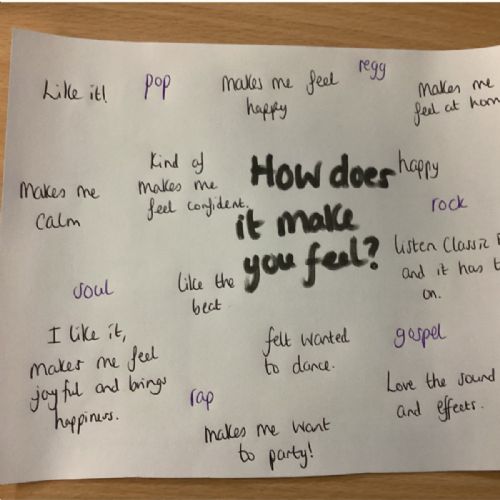 Like it!
pop
makes me feel
happy
regg
Makes me
feel at hom
Makes me
calm
Kind of
makes me
feel confident.
How does
it make
you feel?
happy
rock
listen Classic
and it has t
on.
soul
like the
beat
I like it,
makes me feel
joyful and brings
happiness.
felt wanted
to dance.
gospel
Love the sound
and effects.
rap
makes me want
to party!